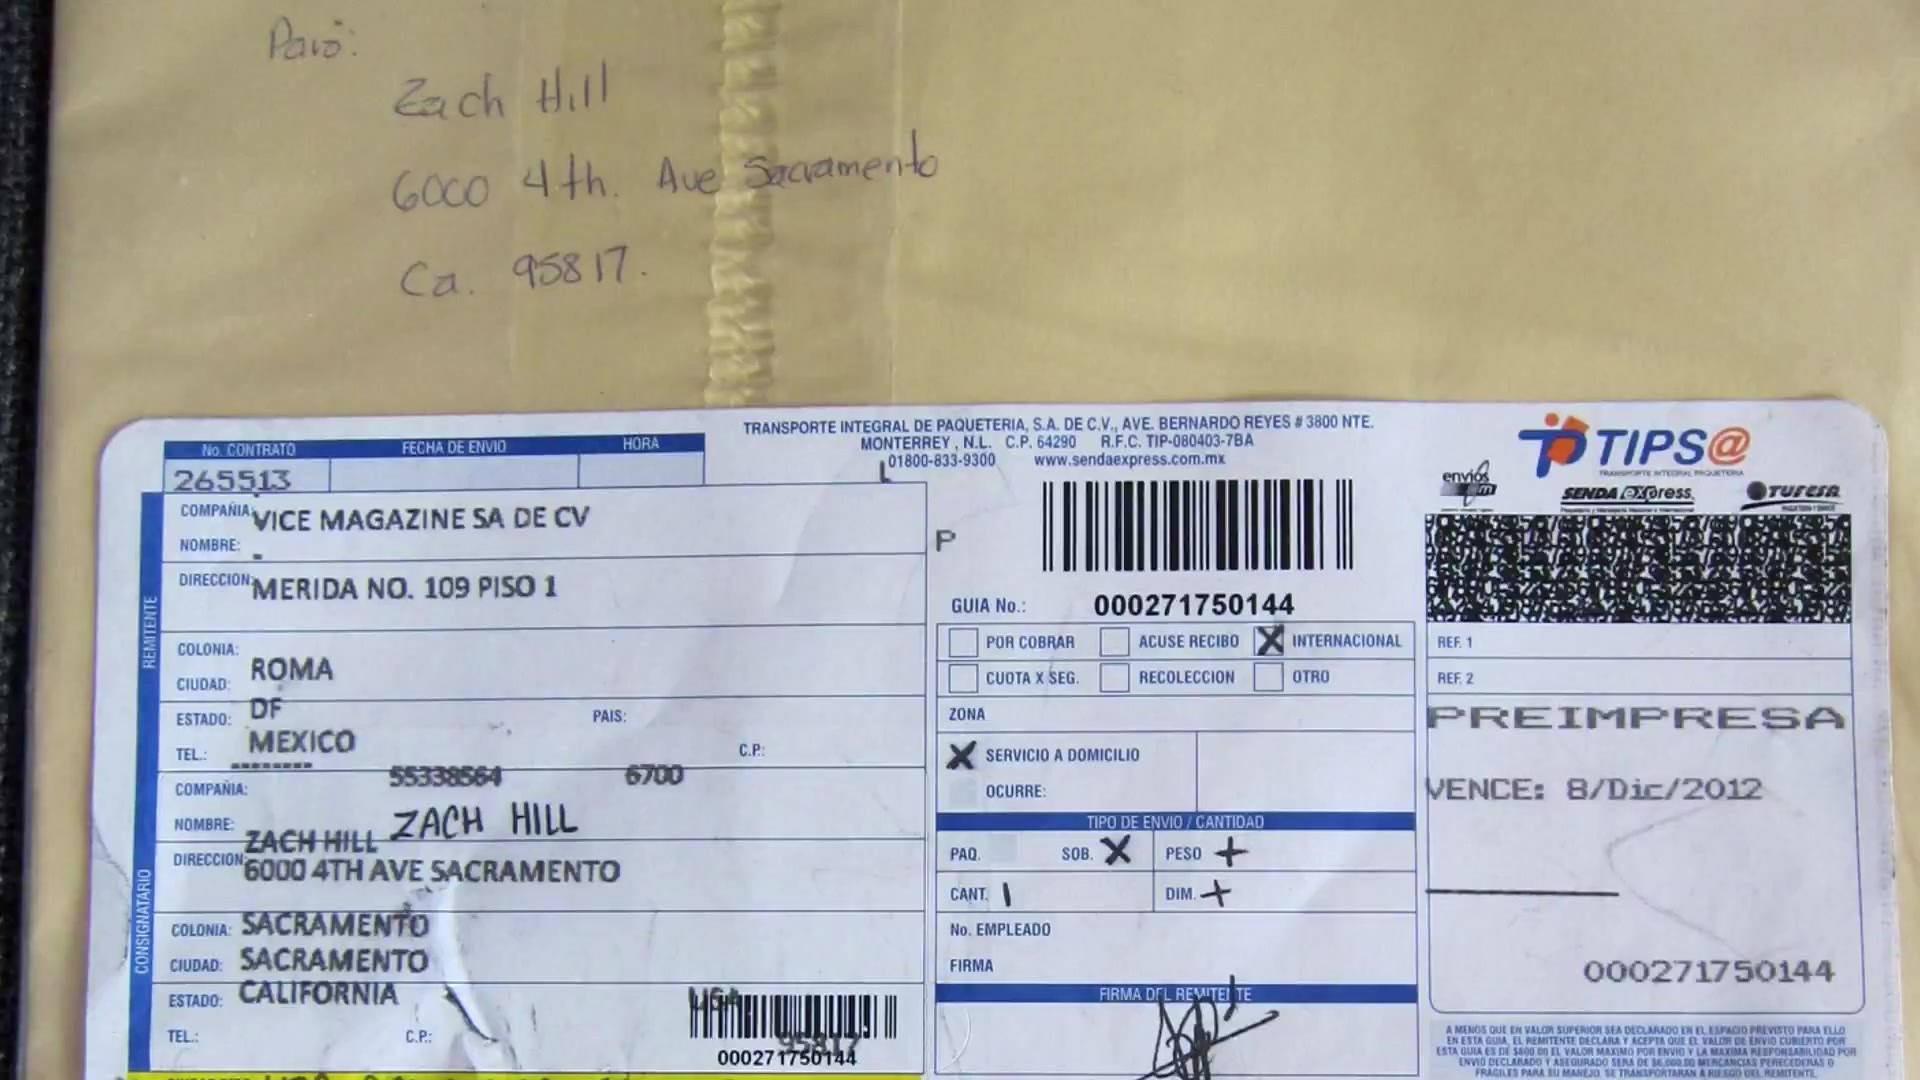 Para:
Zach Hill
6000 4th. Ave Sacramento
Ca. 95817.
TRANSPORTE INTEGRAL DE PAQUETERIA, S.A. DE C.V., AVE. BERNARDO REYES # 3800 NTE.
MONTERREY, N.L. C.P. 64290 R.F.C. TIP-080403-7BA
01800-833-9300 www.sendaexpress.com.mx
TIPS@
TRANSPORTE INTEGRAL PAQUETERIA
envíos
SENDA express
TUFESA
No. CONTRATO FECHA DE ENVIO HORA
265513
REMITENTE
COMPAÑIA: VICE MAGAZINE SA DE CV
NOMBRE:
DIRECCION: MERIDA NO. 109 PISO 1
COLONIA: ROMA
CIUDAD:
ESTADO: DF PAIS:
TEL.: MEXICO C.P.:
55338564 6700
CONSIGNATARIO
COMPAÑIA:
NOMBRE: ZACH HILL
ZACH HILL
DIRECCION: 6000 4TH AVE SACRAMENTO
COLONIA: SACRAMENTO
CIUDAD: SACRAMENTO
ESTADO: CALIFORNIA USA
TEL.: C.P.: 95817
000271750144
P
GUIA No.: 000271750144
POR COBRAR ACUSE RECIBO X INTERNACIONAL
CUOTA X SEG. RECOLECCION OTRO
ZONA
X SERVICIO A DOMICILIO
OCURRE:
TIPO DE ENVIO / CANTIDAD
PAQ. SOB. X PESO +
CANT. 1 DIM. +
No. EMPLEADO
FIRMA
FIRMA DEL REMITENTE
REF. 1
REF. 2
PREIMPRESA
VENCE: 8/Dic/2012
000271750144
A MENOS QUE EN VALOR SUPERIOR SEA DECLARADO EN EL ESPACIO PREVISTO PARA ELLO
EN ESTA GUIA, EL REMITENTE DECLARA Y ACEPTA QUE EL VALOR DE ENVIO CUBIERTO POR
ESTA GUIA ES DE $600.00 EL VALOR MAXIMO POR ENVIO Y LA MAXIMA RESPONSABILIDAD POR
ENVIO DECLARADO Y ASEGURADO SERA DE $6,000.00 MERCANCIAS PERECEDERAS O
FRAGILES PARA SU MANEJO, SE TRANSPORTARAN A RIESGO DEL REMITENTE.